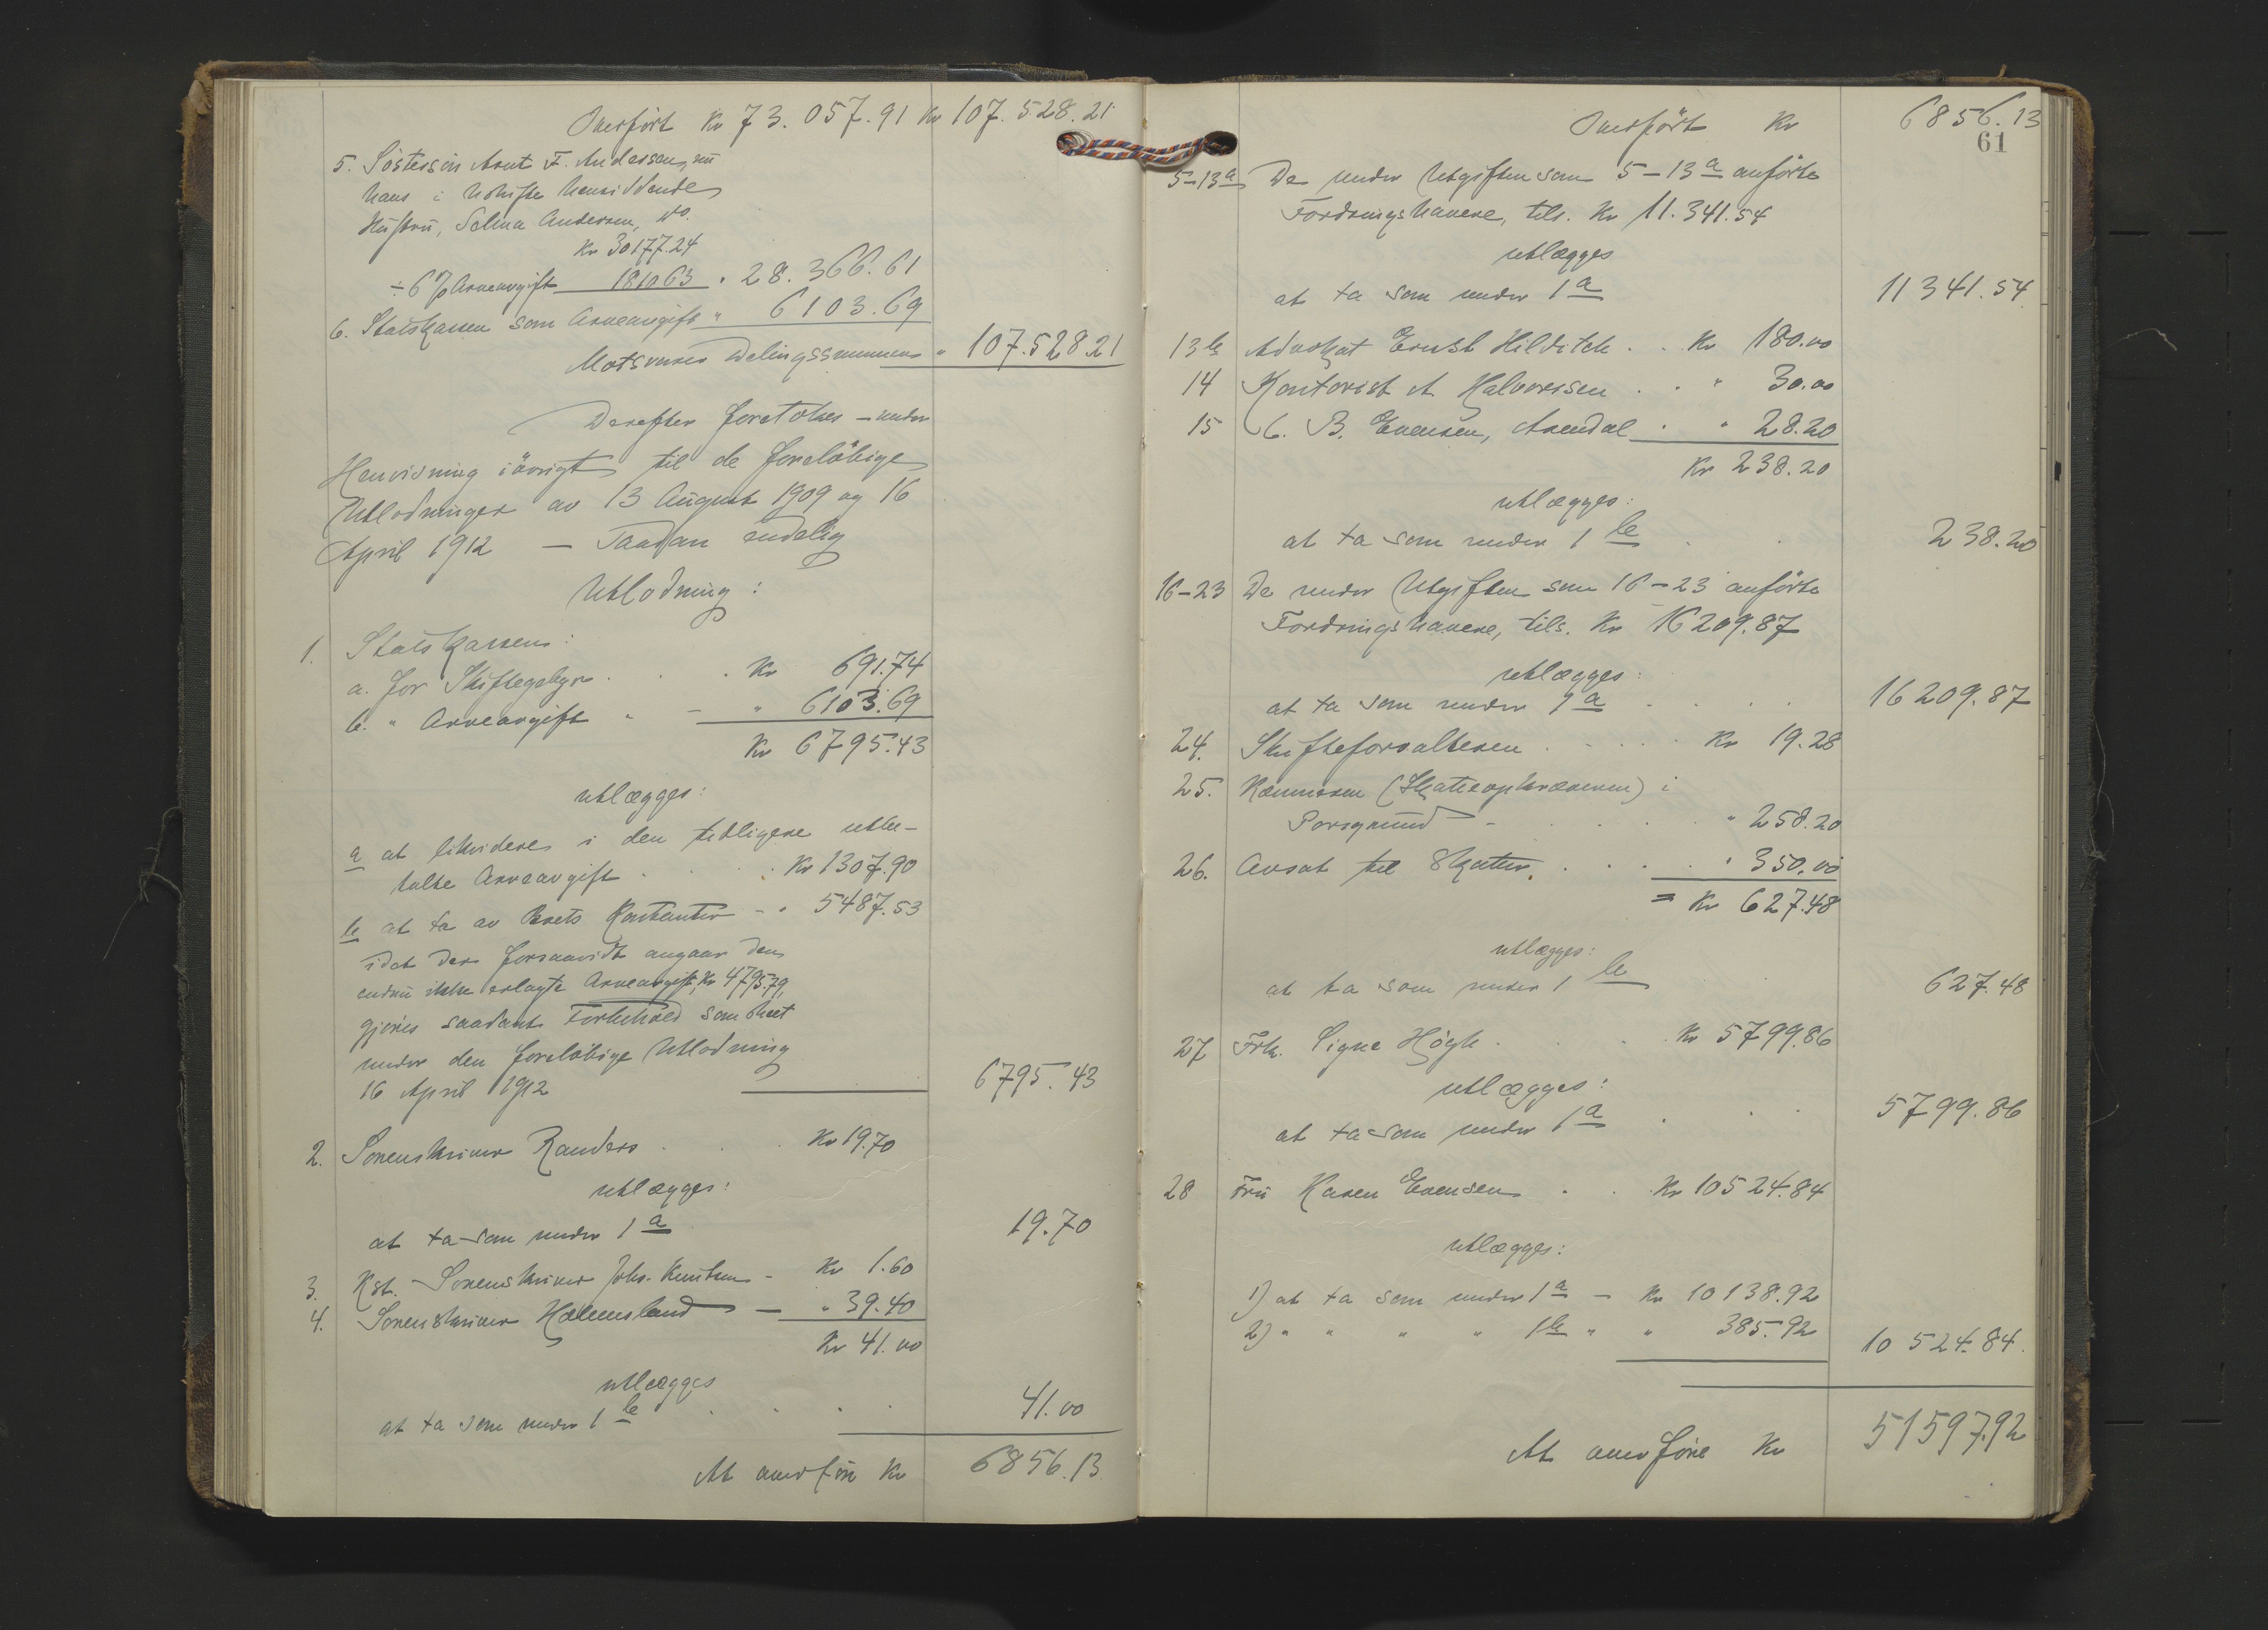 Overført Kr 73.057.91 Kr 107.528.21
5. Søstersøn Arnt F. Andersen, nu
hans i Uskifte hensiddende
Hustru, Selma Andersen, do.
Kr 30177.24
÷ 6 % Arveavgift 1810.63 " 28.366.61
6. Statskassen som Arveavgift " 6103.69
Motsvarer Delingssummen " 107.528.21
Derefter foretokes — under
Henvisning iøvrigt til de foreløbige
Utlodninger av 13 August 1909 og 16
April 1912 — Saadan endelig
Utlodning:
1. Statskassen:
a. for Skiftegebyr . . . Kr 691.74
b. " Arveavgift " — " 6103.69
Kr 6795.43
utlægges:
a at likvidere i den tidligere utbe-
talte Arveavgift . . . Kr 1307.90
b at ta av Boets Kontanter - " 5487.53
idet der forsaavidt angaar den
endnu ikke erlagte Arveavgift, Kr 4795.79,
gjøres saadant Forbehold som skeet
under den foreløbige Utlodning
16 April 1912
6795.43
2. Sorenskriver Randers . . Kr 19.70
utlægges:
at ta som under 1 a
19.70
3. Kst. Sorenskriver Johs. Knutsen - Kr 1.60
4. Sorenskriver Holmesland — " 39.40
Kr 41.00
utlægges
at ta som under 1 b . . . .
41.00
At overføre Kr 6856.13
Overført Kr 6856.13
61
5-13a De under Utgiften som 5-13a anførte
Fordringshavere, tils. Kr 11.341.54
utlægges
at ta som under 1 a
11341.54
13b Advokat Ernst Hilditch . . Kr 180.00
14 Kontorist A Halvorsen . . " 30.00
15 C. B. Evensen, Arendal . " 28.20
Kr 238.20
utlægges:
at ta som under 1 b . .
238.20
16-23 De under Utgiften som 16-23 anførte
Fordringshavere, tils. Kr 16209.87
utlægges:
at ta som under 1 a . . . .
16209.87
24. Skifteforvalteren . . . . . Kr 19.28
25. Kæmneren (Skatteopkræveren) i
Porsgrund - . . . . " 258.20
26. Avsat til Skatter. . . . . " 350.00
= Kr 627.48
utlægges:
at ta som under 1 b
627.48
27 Frk. Signe Høgh . . . . Kr 5799.86
utlægges:
at ta som under 1 a . . .
5799.86
28 Fru Karen Evensen . . . Kr 10524.84
utlægges:
1) at ta som under 1 a — Kr 10138.92
2) " " " " 1 b " " 385.92 10524.84.
At overføre Kr 51597.92